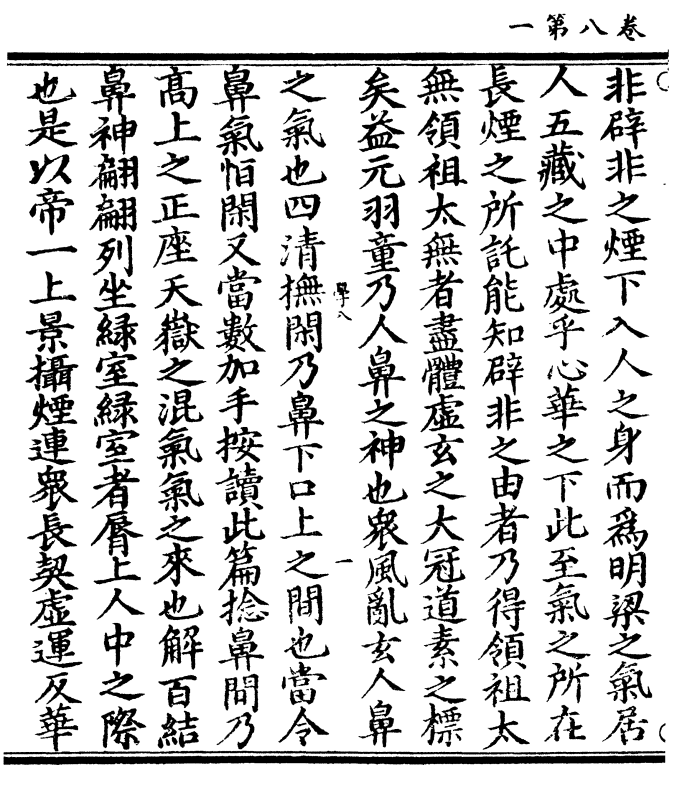 卷八第一
非辟非之煙下入人之身而爲明梁之氣居
人五藏之中處乎心華之下此至氣之所在
長煙之所託能知辟非之由者乃得領祖太
無領祖太無者盡體虛玄之大冠道素之標
矣益元羽童乃人鼻之神也衆風亂玄人鼻
學八 一
之氣也四清撫閑乃鼻下口上之間也當令
鼻氣怕閑又當數加手按讀此篇捻鼻間乃
髙上之正座天嶽之混氣氣之來也解百結
鼻神翩翩列坐緑室緑室者脣上人中之際
也是以帝一上景攝煙連衆長契虛運反華